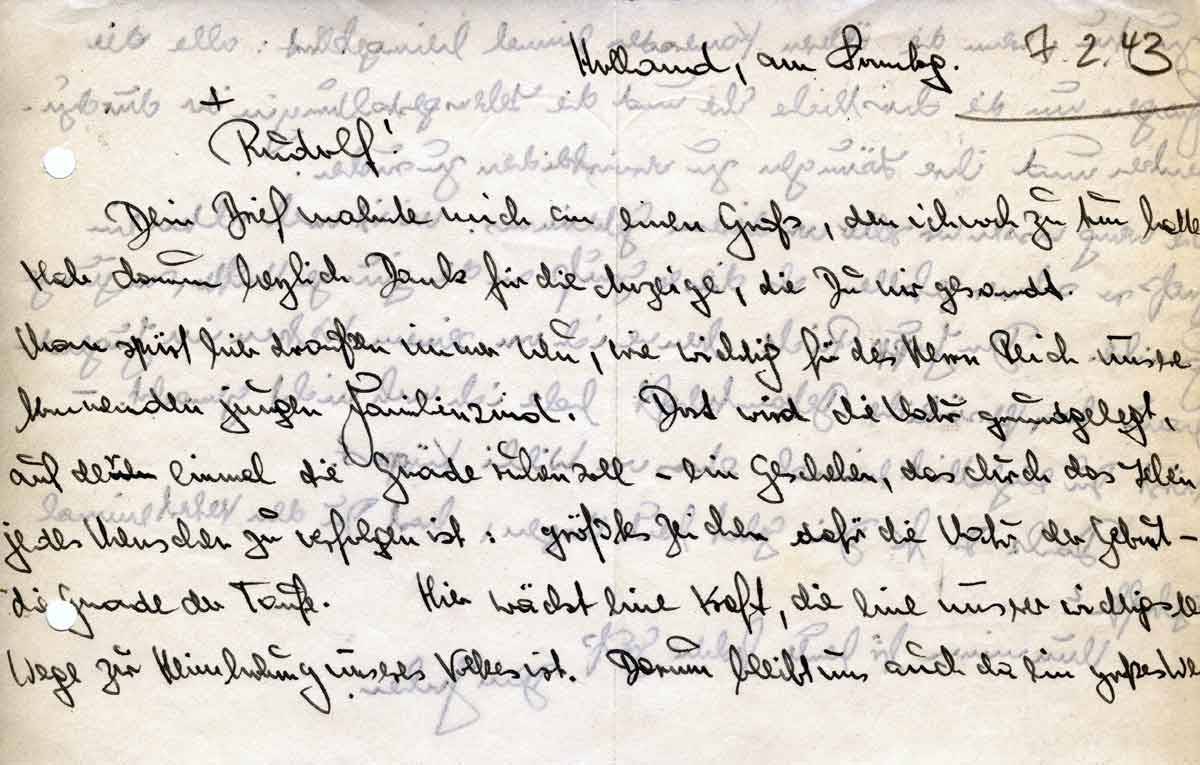 Holland, am Sonntag. 7.2.43
+
Rudolf!
Dein Brief mahnte mich an einen Gruß, den ich noch zu tun hatte
Hab darum herzlich Dank für die Anzeige, die Du mir gesandt.
Man spürt hier draußen immer neu, wie wichtig für des Herrn Reich unsere
kommenden jungen Familien sind. Dort wird die Natur grundgelegt,
auf der einmal die Gnade ruhen soll – ein Geschehen, das durch das Leben
jedes Menschen zu verfolgen ist: größtes Zeichen dafür die Natur der Geburt –
die Gnade der Taufe. Hier wächst eine Kraft, die eine unsrer wichtigste
Wege zur Heimholung unseres Volkes ist. Darum bleibt uns auch da ein großes